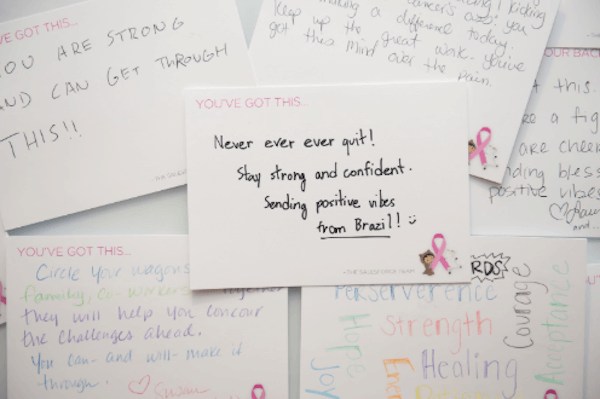 VE GOT THIS...
OU ARE STRONG
ND CAN GET THROUGH
THIS!!
making a difference today.
Keep up the great work. You've
got this mind over the pain.
OUR BAC
t this.
are cheer
nding bless
positive vibes
and...
YOU'VE GOT THIS...
Never ever ever quit!
Stay strong and confident.
Sending positive vibes
from Brazil!
RDS
YOU'VE GOT THIS...
Circle your wagons
family, co-workers together
they will help you concour
the challenges ahead.
You can- and will- make it
through.
Perserverence
Strength
Healing
Hope
Joy
Courage
Acceptance